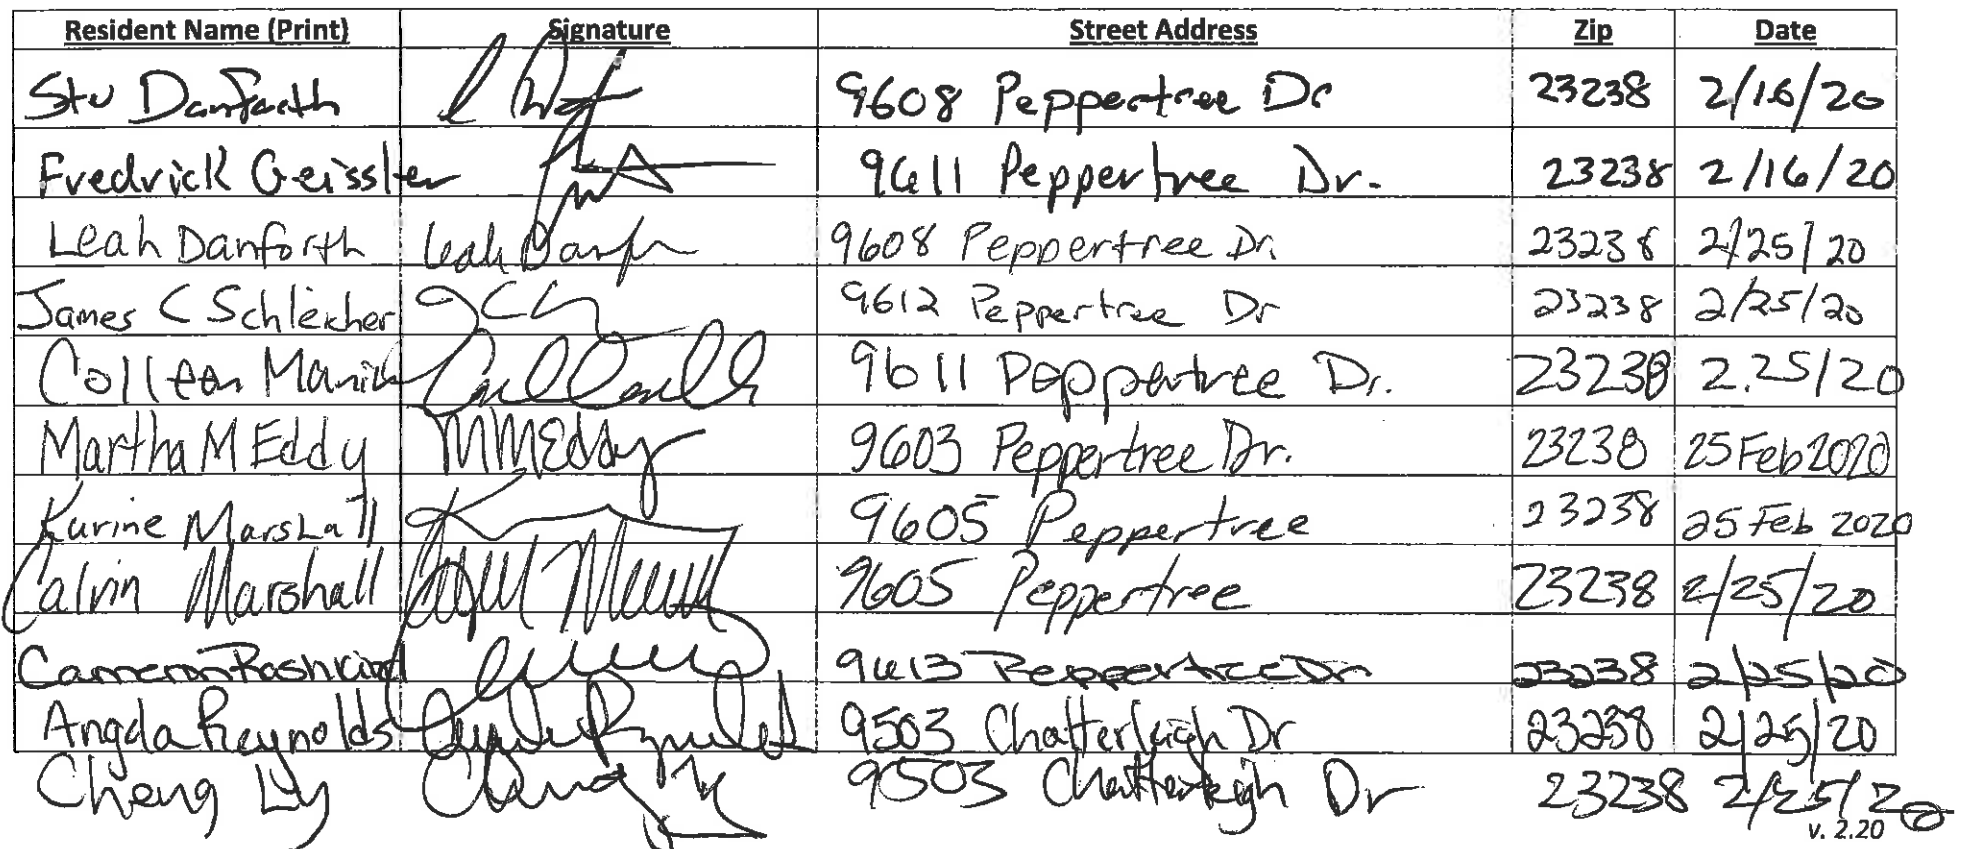 Resident Name (Print) Signature Street Address Zip Date
Stu Danforth 9608 Peppertree Dr 23238 2/16/20
Fredrick Geissler 9611 Peppertree Dr. 23238 2/16/20
Leah Danforth Leah Danf 9608 Peppertree Dr. 23238 2/25/20
James C Schleicher JCS 9612 Peppertree Dr 23238 2/25/20
Colleen 9611 Peppertree Dr. 23238 2.25/20
Martha M Eddy MMEddy 9603 Peppertree Dr. 23238 25 Feb 2020
Karine Marshall 9605 Peppertree 23238 25 Feb 2020
Calvin Marshall 9605 Peppertree 23238 2/25/20
Cameron 9613 Peppertree Dr 23238 2/25/20
Angela Reynolds Angela Reynolds 9503 Chatterleigh Dr 23238 2/25/20
Cheng Ly Cheng Ly 9503 Chatterleigh Dr 23238 2/25/20
v. 2.20